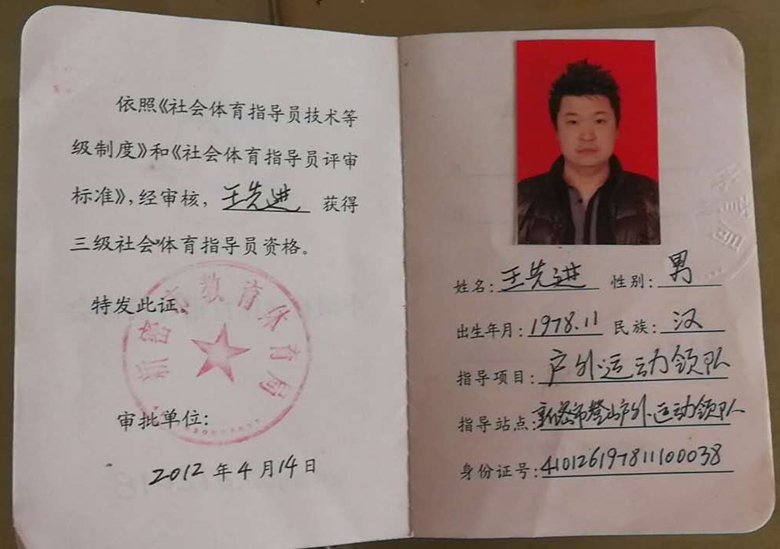 依照《社会体育指导员技术等
级制度》和《社会体育指导员评审
标准》,经审核, 王先进 获得
三级社会体育指导员资格。
特发此证。
新密市教育体育局
审批单位:
2012 年 4 月 14 日
姓名: 王先进 性别: 男
出生年月: 1978.11 民族: 汉
指导项目: 户外运动领队
指导站点: 新密市登山户外运动领队
身份证号: 410126197811100038